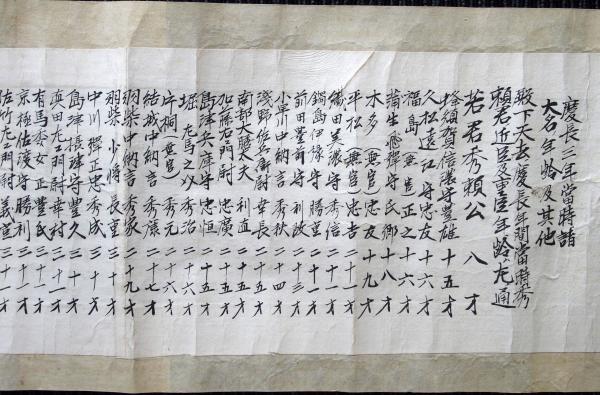 慶長三年當時諸
大名年齢及其他
殿下天去慶長年間當時秀
頼君近臣及重臣年齢左通
若君秀頼公 八才
蜂須賀信濃守豊雄 十五才
久松遠江守忠友 十六才
福島(無官)正之 十六才
蒲生飛騨守氏郷 十八才
本多(無官)忠友 十九才
平松(無官)忠吉 二十一才
織田美濃守秀信 二十一才
鍋島伊豫守勝重 二十一才
前田筑前守利政 二十三才
小早川中納言秀秋 二十四才
浅野佐兵衛尉幸長 二十五才
南部大膳太夫利直 二十五才
加藤右門尉忠廣 二十五才
島津兵庫守忠恒 二十五才
堀左馬之以秀治 二十六才
片桐(無官)秀元 二十六才
結城中納言秀康 二十七才
羽柴中納言秀家 二十九才
羽柴少将長重 三十才
中川修正忠秀成 三十才
島津侯球守豊久 三十才
真田左エ門尉幸村 三十一才
有馬奉女正豊氏 三十一才
京極佐渡守勝利 三十一才
佐竹左エ門尉義宣 三十一才